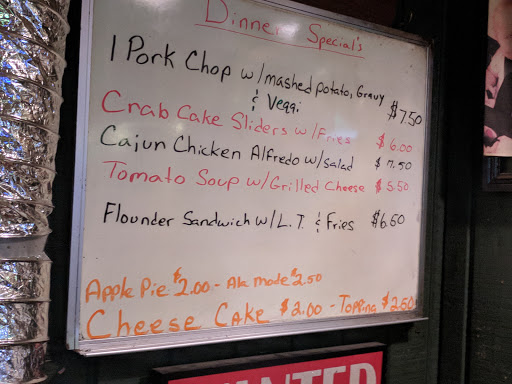 Dinner Special's
1 Pork Chop w/mashed potato, Gravy $7.50
& Veggi
Crab Cake Sliders w/Fries $6.00
Cajun Chicken Alfredo w/salad $7.50
Tomato Soup w/Grilled Cheese $5.50
Flounder Sandwich w/L.T. & Fries $6.50
Apple Pie $2.00 - Ala mode $2.50
Cheese Cake $2.00 - Topping $2.50
WANTED